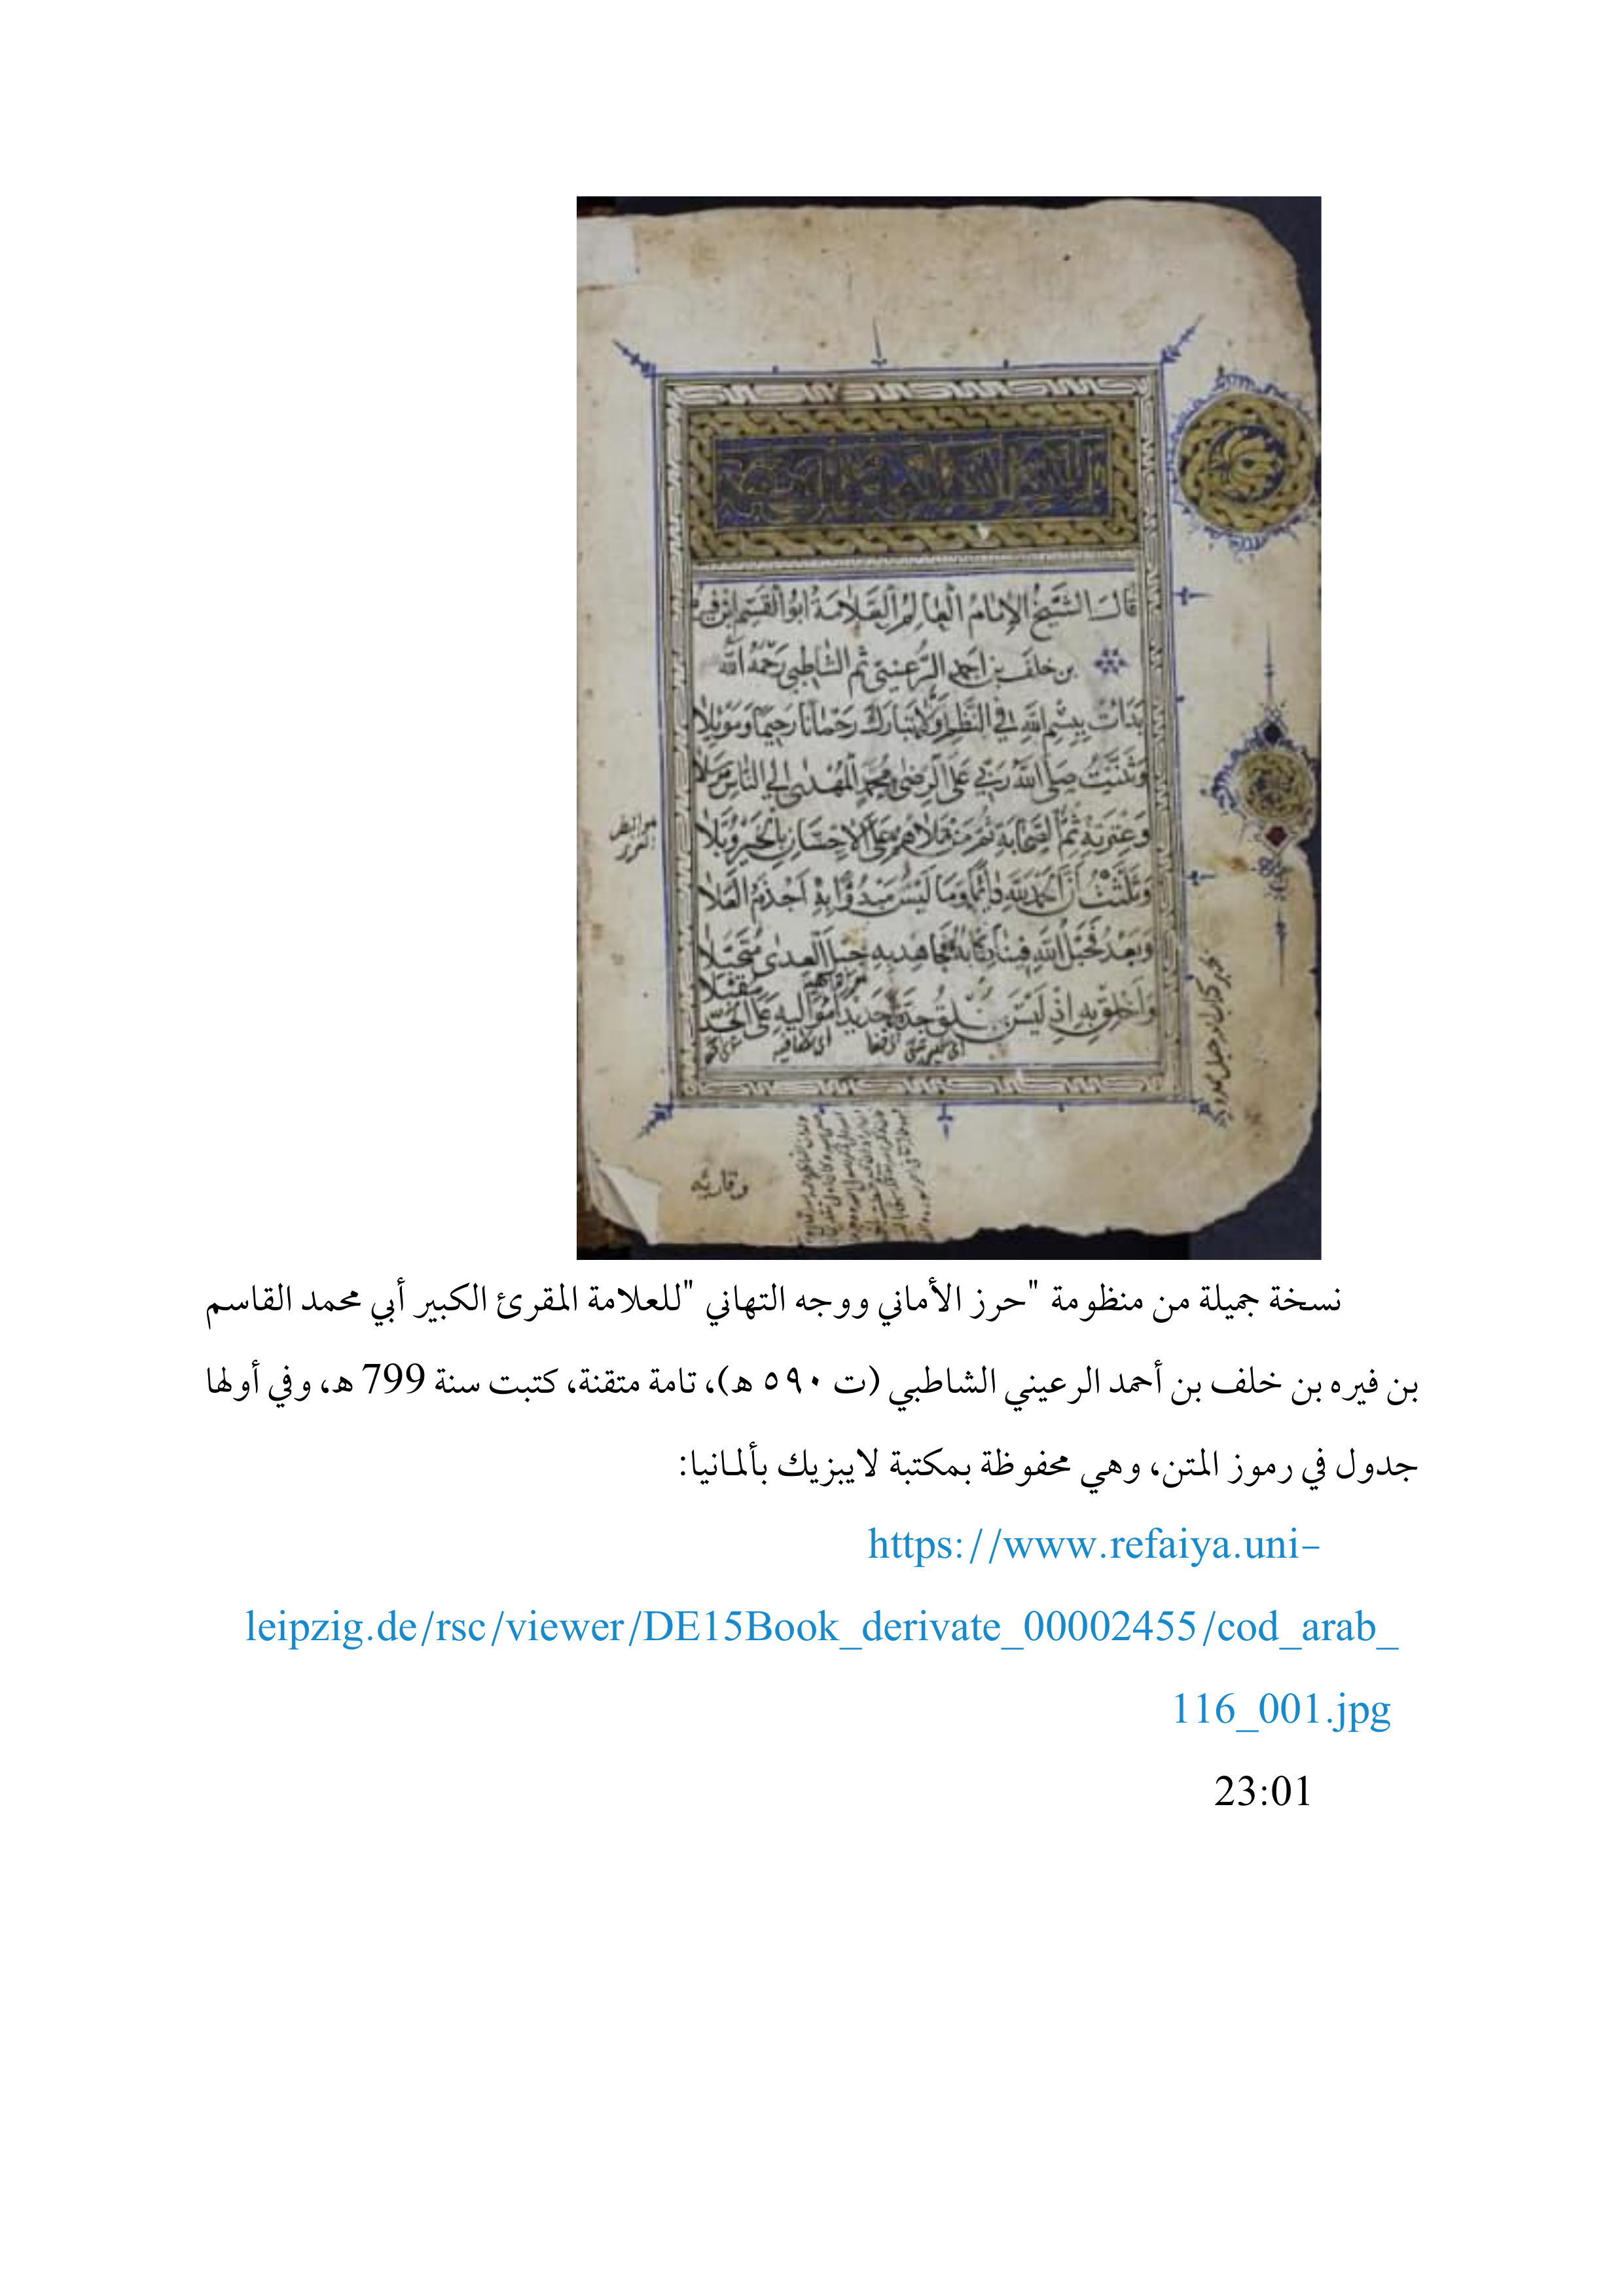 قَالَ الشَّيْخُ الإِمَامُ العَالِمُ العَلَّامَةُ ابُو القَسِم ابن فيره
بن خلف بن احمد الرُّعيني ثم الشاطبي رَحمهُ الله
بَدَاتُ بِبِسْمِ اللهِ في النَّظمِ أَوَّلَا تَبَارَكَ رَحْمَانًا رَحِيمًا وَمَوْئِلَا
وَثَنَّيْتُ صَلَّى اللهُ رَبِّي عَلَى الرِّضَى مُحَمَّدٍ المُهْدَى إلى النَّاسِ مُرْسَلَا
وَعِتْرَتِهِ ثُمَّ الصَّحَابَةِ ثُمَّ مَنْ تَلَاهُمْ عَلَى الاِحْسَانِ بِالخَيْرِ وُبَّلَا
وَثَلَّثْتُ أَنَّ الحَمْدَ لِلَّهِ دَائِمًا وَمَا لَيْسَ مَبْدُوًّا بِهِ أَجْذَمُ العَلَا
وَبَعْدُ فَحَبْلُ اللهِ فِينَا كِتَابُهُ فَجَاهِدْ بِهِ حِبْلَ العِدَى مُتَحَبِّلَا
وَأَخْلِقْ بِهِ إِذْ لَيْسَ يَخْلُقُ جِدَّةً جَدِيدًا مُوَالِيهِ عَلَى الجِدِّ مُقْبِلَا
وقاريه
نسخة جميلة من منظومة "حرز الأماني ووجه التهاني "للعلامة المقرئ الكبير أبي محمد القاسم
بن فيره بن خلف بن أحمد الرعيني الشاطبي (ت ٥٩٠ هـ)، تامة متقنة، كتبت سنة 799 هـ، وفي أولها
جدول في رموز المتن، وهي محفوظة بمكتبة لايبزيك بألمانيا:
https://www.refaiya.uni-
leipzig.de/rsc/viewer/DE15Book_derivate_00002455/cod_arab_
116_001.jpg
23:01